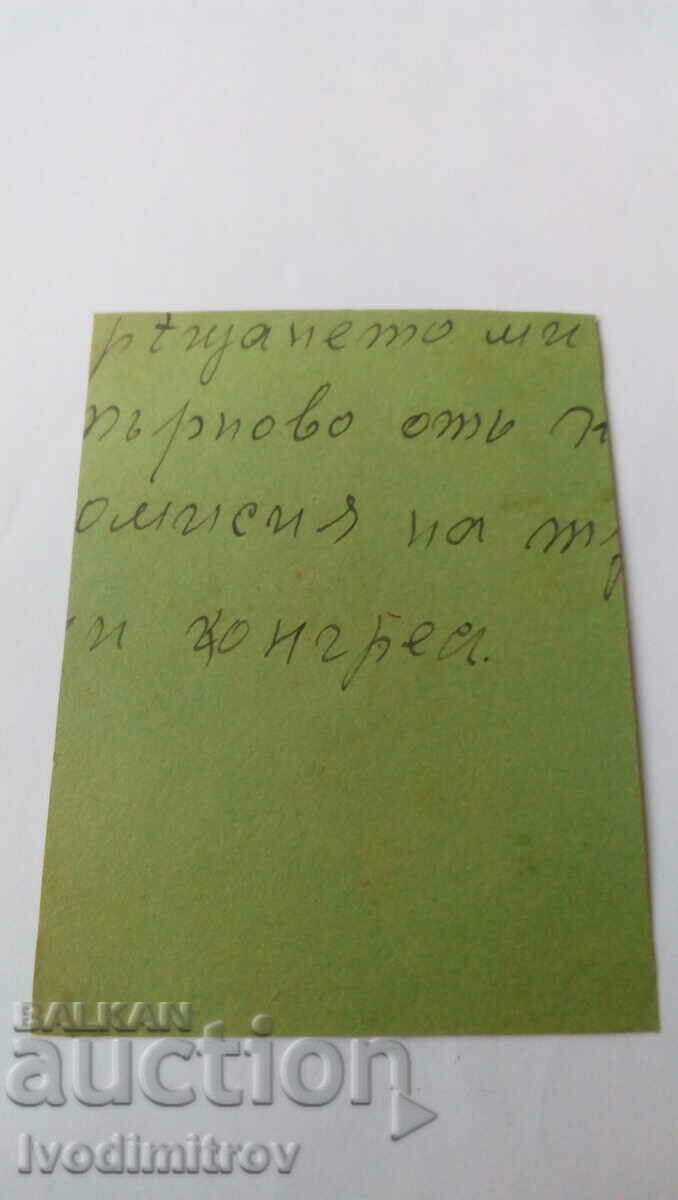 рѣщането ми
търново отъ к
омисия на тр
ки конгреса.
BALKAN
auction
Ivodimitrov